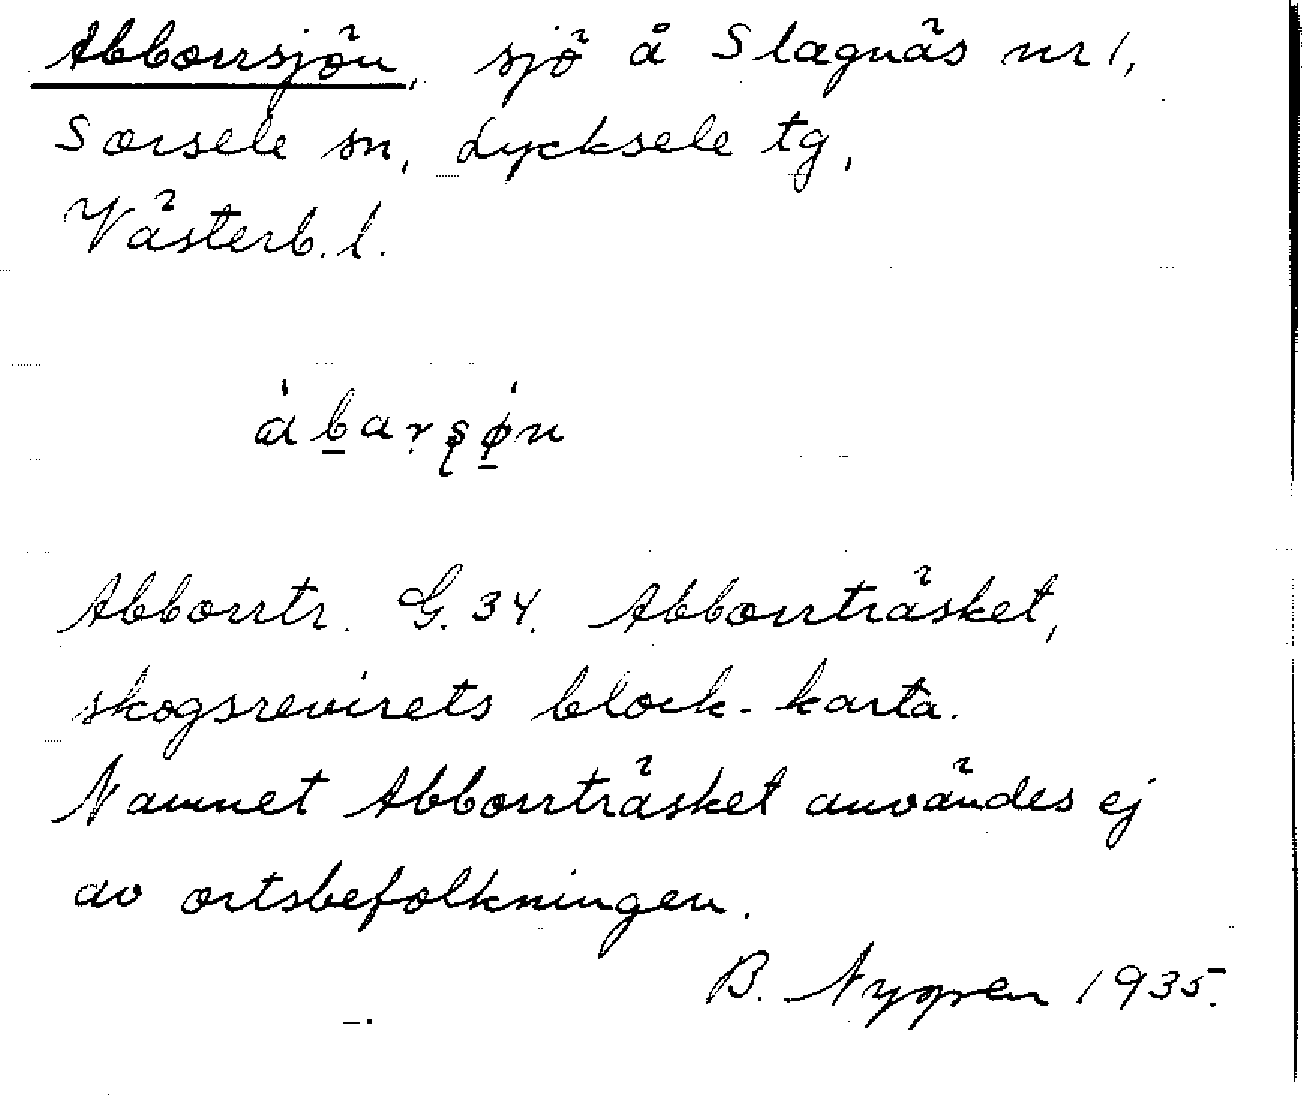 Abborrsjön, sjö å Slagnäs nr 1,
Sorsele sn, Lycksele tg,
Västerb. l.
Abborrtr. G. 34. Abborrträsket,
skogsrevirets block-karta.
Namnet Abborrträsket användes ej
av ortsbefolkningen.
B. Nygren 1935.